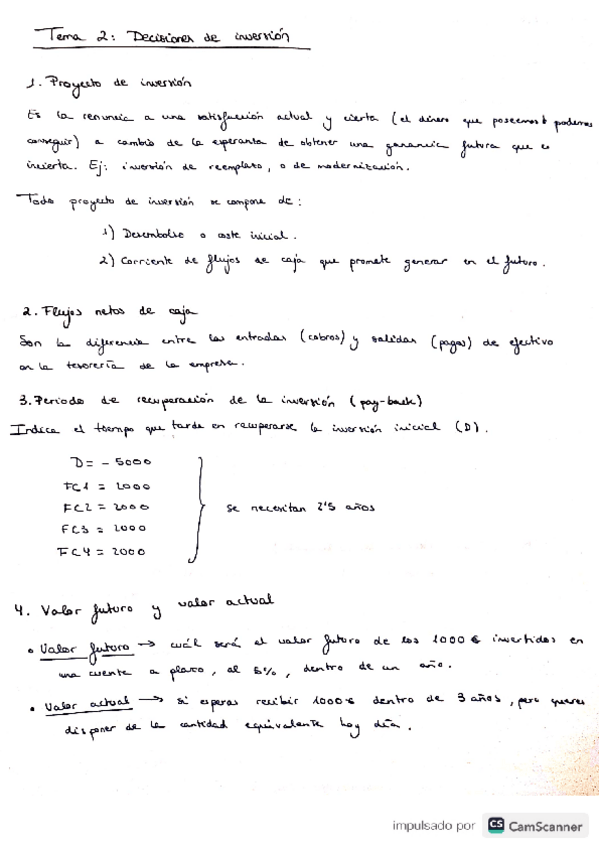 Tema 2: Decisiones de inversión
1. Proyecto de inversión
Es la renuncia a una satisfacción actual y cierta (el dinero que poseemos o podemos
conseguir) a cambio de la esperanza de obtener una ganancia futura que es
incierta. Ej: inversión de reemplazo, o de modernización.
Todo proyecto de inversión se compone de:
1) Desembolso o coste inicial.
2) Corriente de flujos de caja que promete generar en el futuro.
2. Flujos netos de caja
Son la diferencia entre las entradas (cobros) y salidas (pagos) de efectivo
en la tesorería de la empresa.
3. Periodo de recuperación de la inversión (pay-back)
Indica el tiempo que tarda en recuperarse la inversión inicial (D).
D = - 5000
FC1 = 2000
FC2 = 2000
FC3 = 2000
FC4 = 2000
se necesitan 2'5 años
4. Valor futuro y valor actual
• Valor futuro → cuál será el valor futuro de los 1000 € invertidos en
una cuenta a plazo, al 5%, dentro de un año.
• Valor actual → si esperas recibir 1000 € dentro de 3 años, pero quieres
disponer de la cantidad equivalente hoy día.
impulsado por CS CamScanner